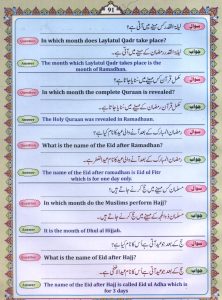 91
سوال لیلۃ القدر کس مہینے میں آتی ہے؟
Question In which month does Laylatul Qadr take place?
جواب لیلۃ القدر رمضان کے مہینے میں آتی ہے۔
Answer The month Laylatul Qadr takes place is the
month of Ramadhan.
سوال مکمل قرآن کس مہینے میں
Question In which month the complete Quraan is revealed?
جواب مکمل قرآن رمضان کے مہینے میں
Answer The Holy Quraan was revealed in Ramadhan.
سوال رمضان المبارک کے بعد آنے والی عید کا نام کیا ہے؟
Question What is the name of the Eid after Ramadhan?
جواب رمضان المبارک کے بعد آنے والی عید کا نام عید الفطر ہے۔
Answer The name of the Eid after ramadhan is Eid ul Fitr
which is for one day only.
سوال مسلمان کس مہینے میں حج کرنے جاتے ہیں؟
Question In which month do the Muslims perform Hajj?
جواب مسلمان کے مہینے میں حج کرنے جاتے ہیں۔
Answer It is the month of Dhul al Hijjah.
سوال حج کے بعد جو عید آتی ہے اُس کا نام کیا ہے؟
Question What is the name of Eid after Hajj?
جواب حج کے بعد جو عید آتی ہے اُس کا نام
Answer The name of the Eid after Hajj is called Eid ul Adha which is
for 3 days